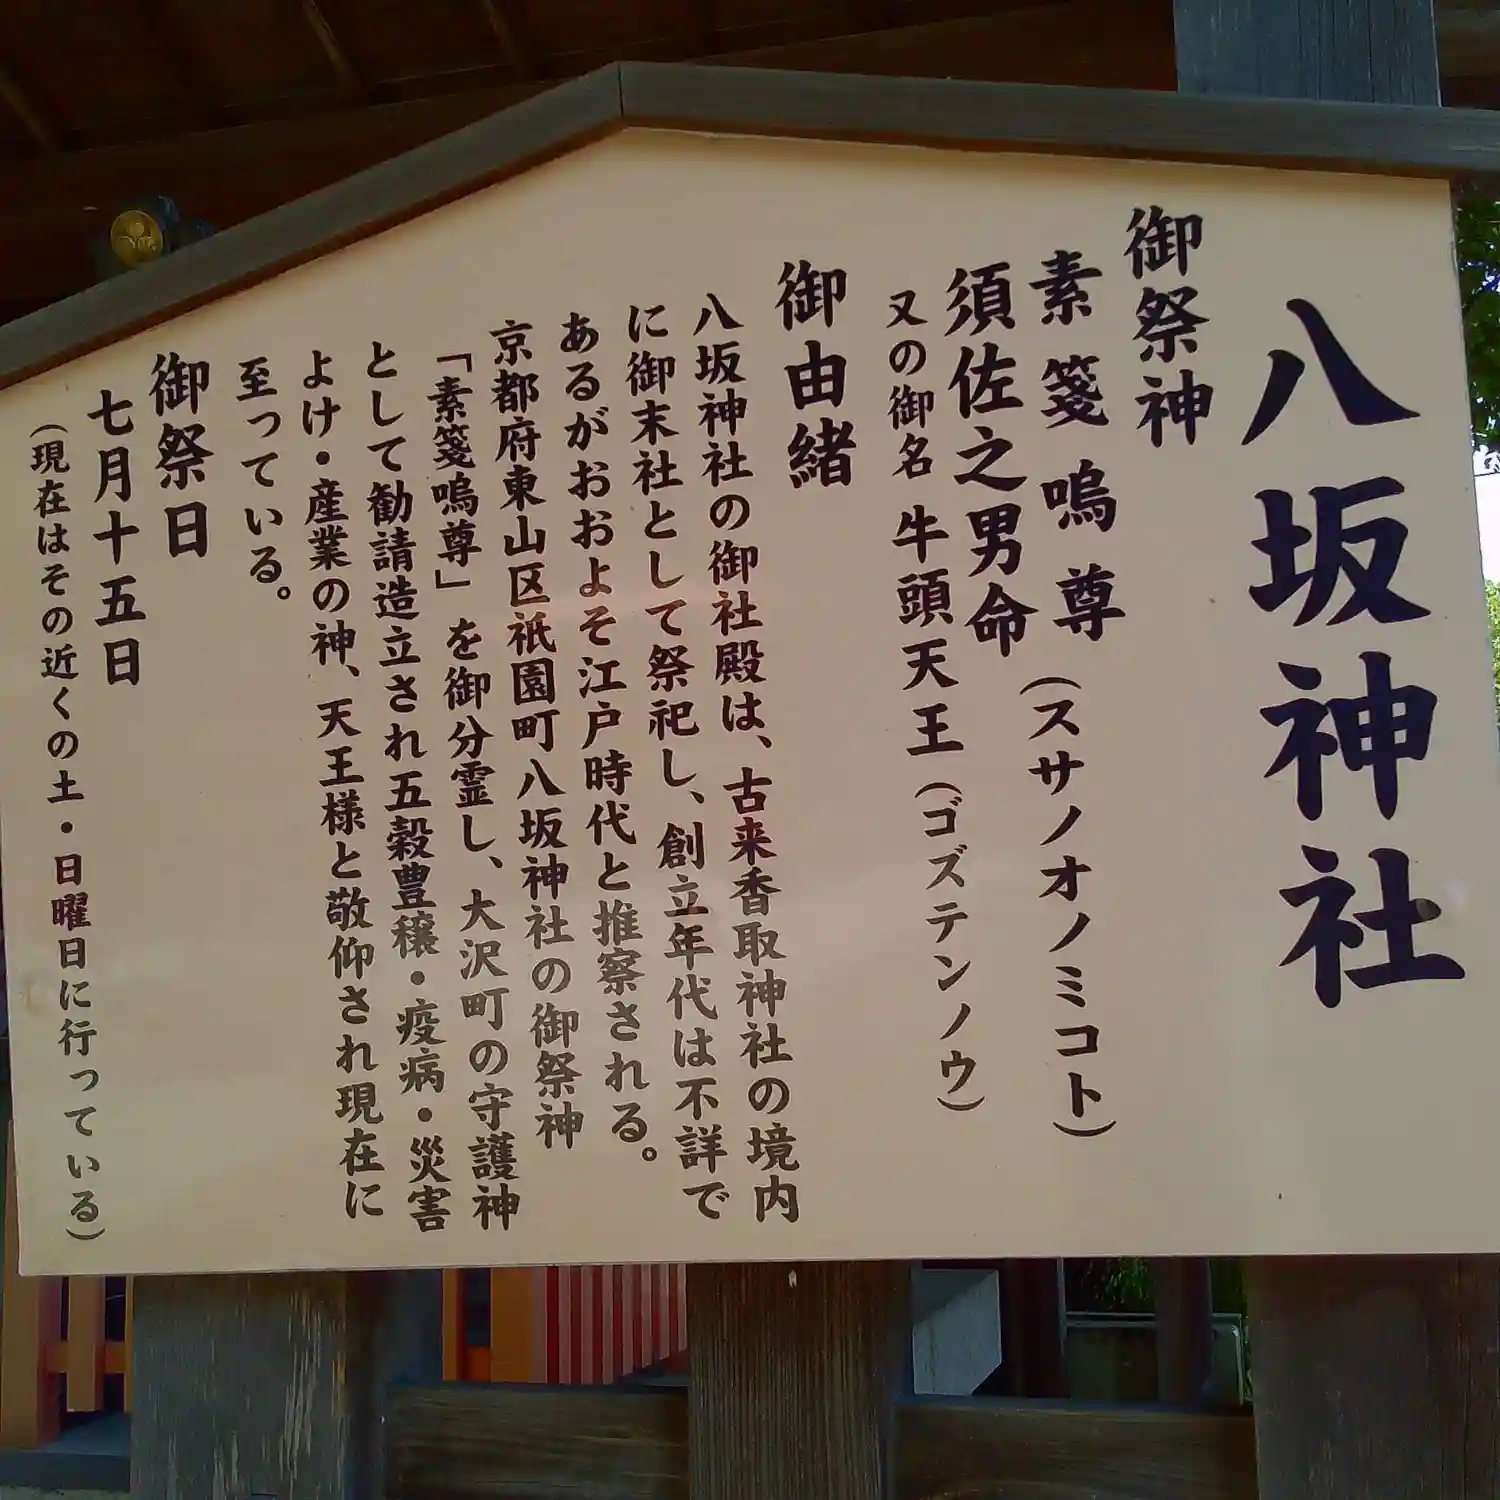 八坂神社
御祭神
素箋嗚尊(スサノオノミコト)
須佐之男命
又の御名 牛頭天王(ゴズテンノウ)
御由緒
八坂神社の御社殿は、古来香取神社の境内
に御末社として祭祀し、創立年代は不詳で
あるがおおよそ江戸時代と推察される。
京都府東山区祇園町八坂神社の御祭神
「素箋嗚尊」を御分霊し、大沢町の守護神
として勧請造立され五穀豊穣・疫病・災害
よけ・産業の神、天王様と敬仰され現在に
至っている。
御祭日
七月十五日
(現在はその近くの土・日曜日に行っている)